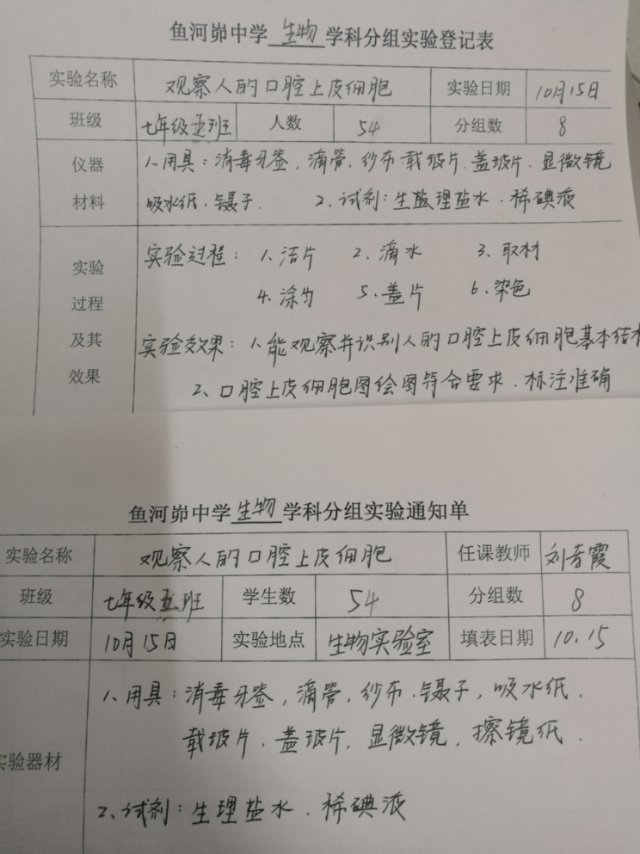 鱼河峁中学 生物 学科分组实验登记表
实验名称 观察人的口腔上皮细胞 实验日期 10月15日
班级 七年级五班 人数 54 分组数 8
仪器材料 1、用具：消毒牙签、滴管、纱布、载玻片、盖玻片、显微镜
吸水纸、镊子. 2、试剂：生理盐水、稀碘液
实验过程及其效果 实验过程：1、洁片 2、滴水 3、取材
4、涂匀 5、盖片 6、染色
实验效果：1、能观察并识别人的口腔上皮细胞基本结构
2、口腔上皮细胞图绘图符合要求、标注准确
鱼河峁中学 生物 学科分组实验通知单
实验名称 观察人的口腔上皮细胞 任课教师 刘芳霞
班级 七年级五班 学生数 54 分组数 8
实验日期 10月15日 实验地点 生物实验室 填表日期 10.15
实验器材 1、用具：消毒牙签，滴管，纱布、镊子，吸水纸.
载玻片、盖玻片、显微镜、擦镜纸.
2、试剂：生理盐水、稀碘液